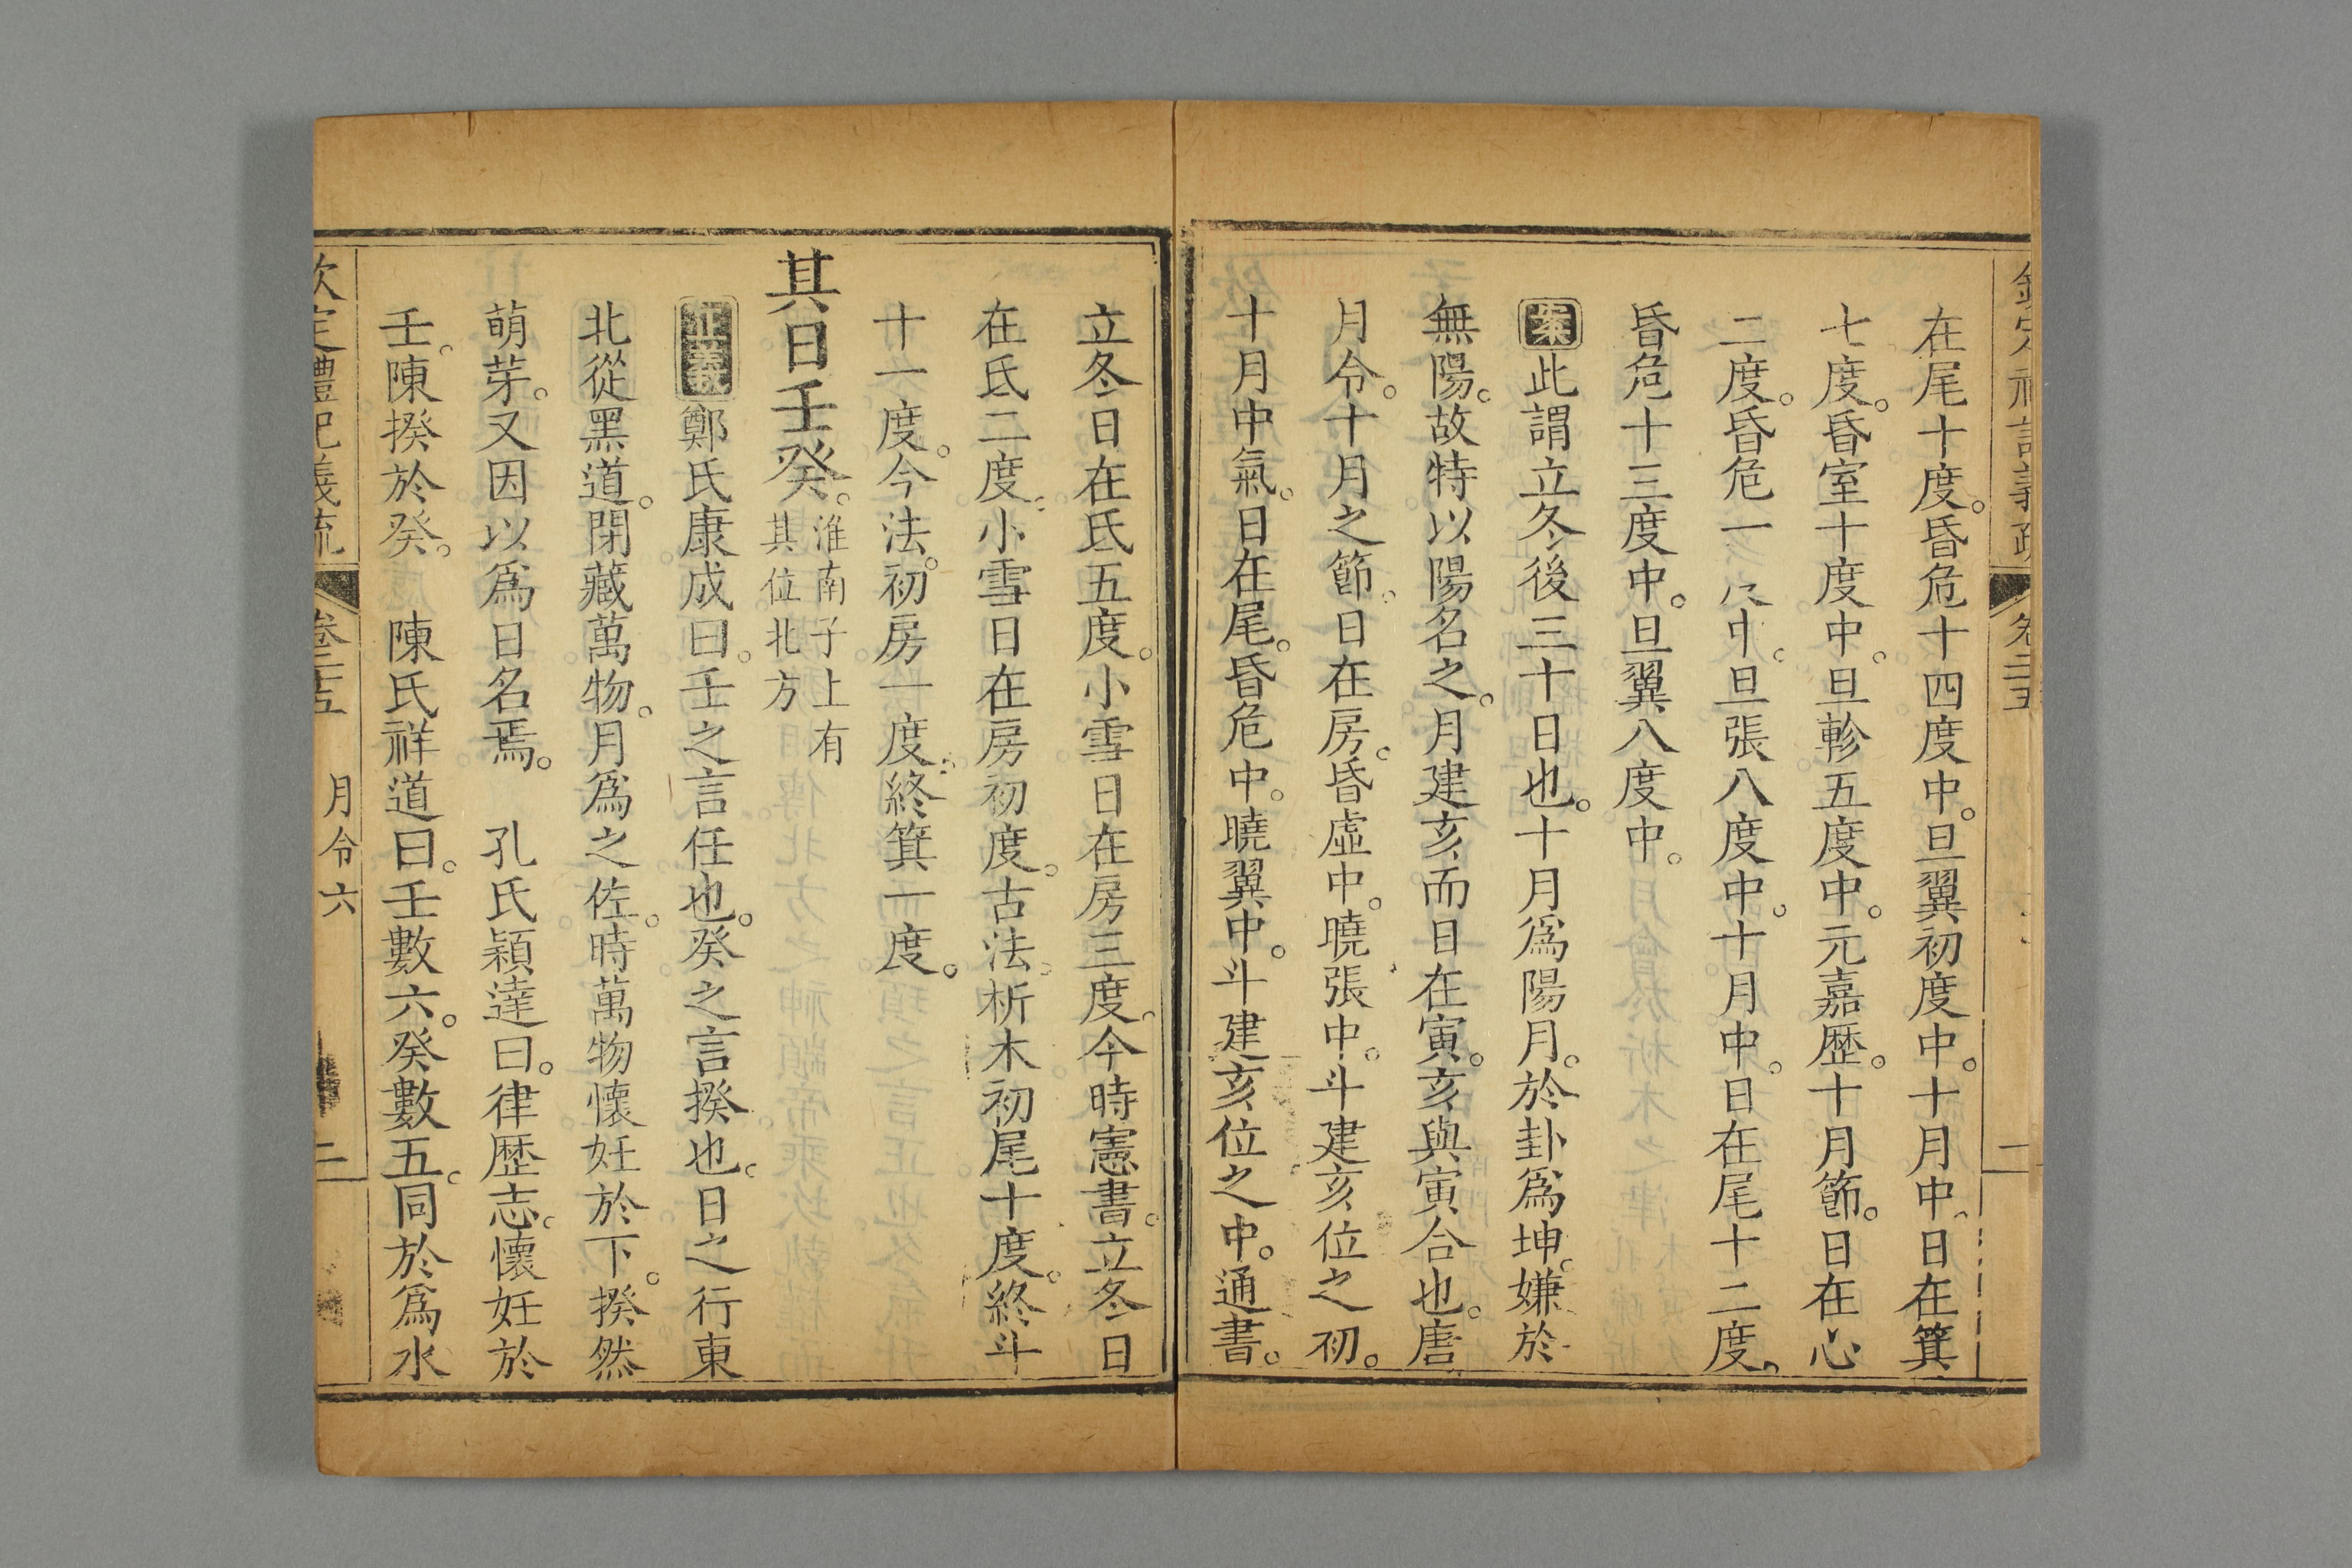 在尾十度。昏危十四度中。旦翼初度中。十月中。日在箕
七度。昏室十度中。旦軫五度中。元嘉歷。十月節。日在心
二度。昏危一 中。旦張八度中。十月中。日在尾十二度。
昏危十三度中。旦翼八度中。
案此謂立冬後三十日也。十月爲陽月。於卦爲坤。嫌於
無陽。故特以陽名之。月建亥而日在寅。亥與寅合也。唐
月令。十月之節。日在房。昏虛中。曉張中。斗建亥位之初。
十月中氣。日在尾。昏危中。曉翼中。斗建亥位之中。通書。
立冬日在氐五度。小雪日在房三度。今時憲書。立冬日
在氐二度。小雪日在房初度。古法。析木初尾十度。終斗
十一度。今法。初房一度。終箕一度。
其日壬癸。淮南子上有
其位北方
正義鄭氏康成曰。壬之言任也。癸之言揆也。日之行東
北從黑道。閉藏萬物。月爲之佐。時萬物懷妊於下。揆然
萌芽。又因以爲日名焉。 孔氏穎達曰。律歷志。懷妊於
壬。陳揆於癸。 陳氏祥道曰。壬數六。癸數五。同於爲水
欽定禮記義疏 卷二十五 月令六 二